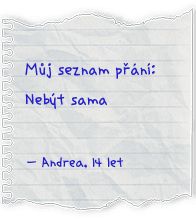 Můj seznam přání:
Nebýt sama
– Andrea. 14 let